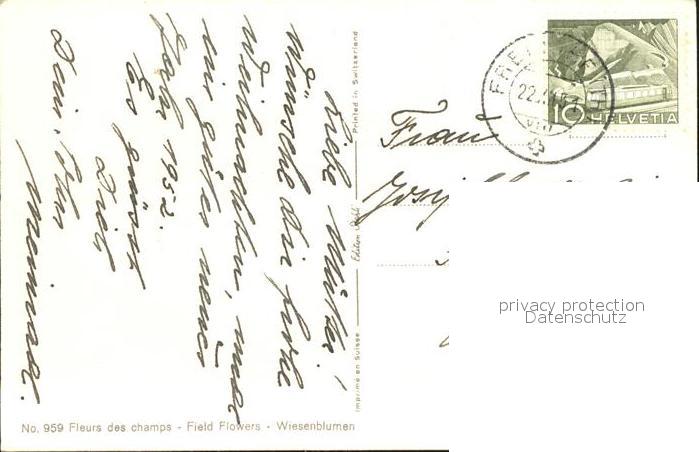 Liebe Mutter!
Wünsche Dir frohe
Weihnachten, und
ein gutes neues
Jahr 1952.
Es grüsst
Dich
Dein Sohn
Meinrad.
Printed in Switzerland
Edition Stehli
Imprimé en Suisse
No. 959 Fleurs des champs - Field Flowers - Wiesenblumen
22.
10 HELVETIA
Frau
privacy protection
Datenschutz